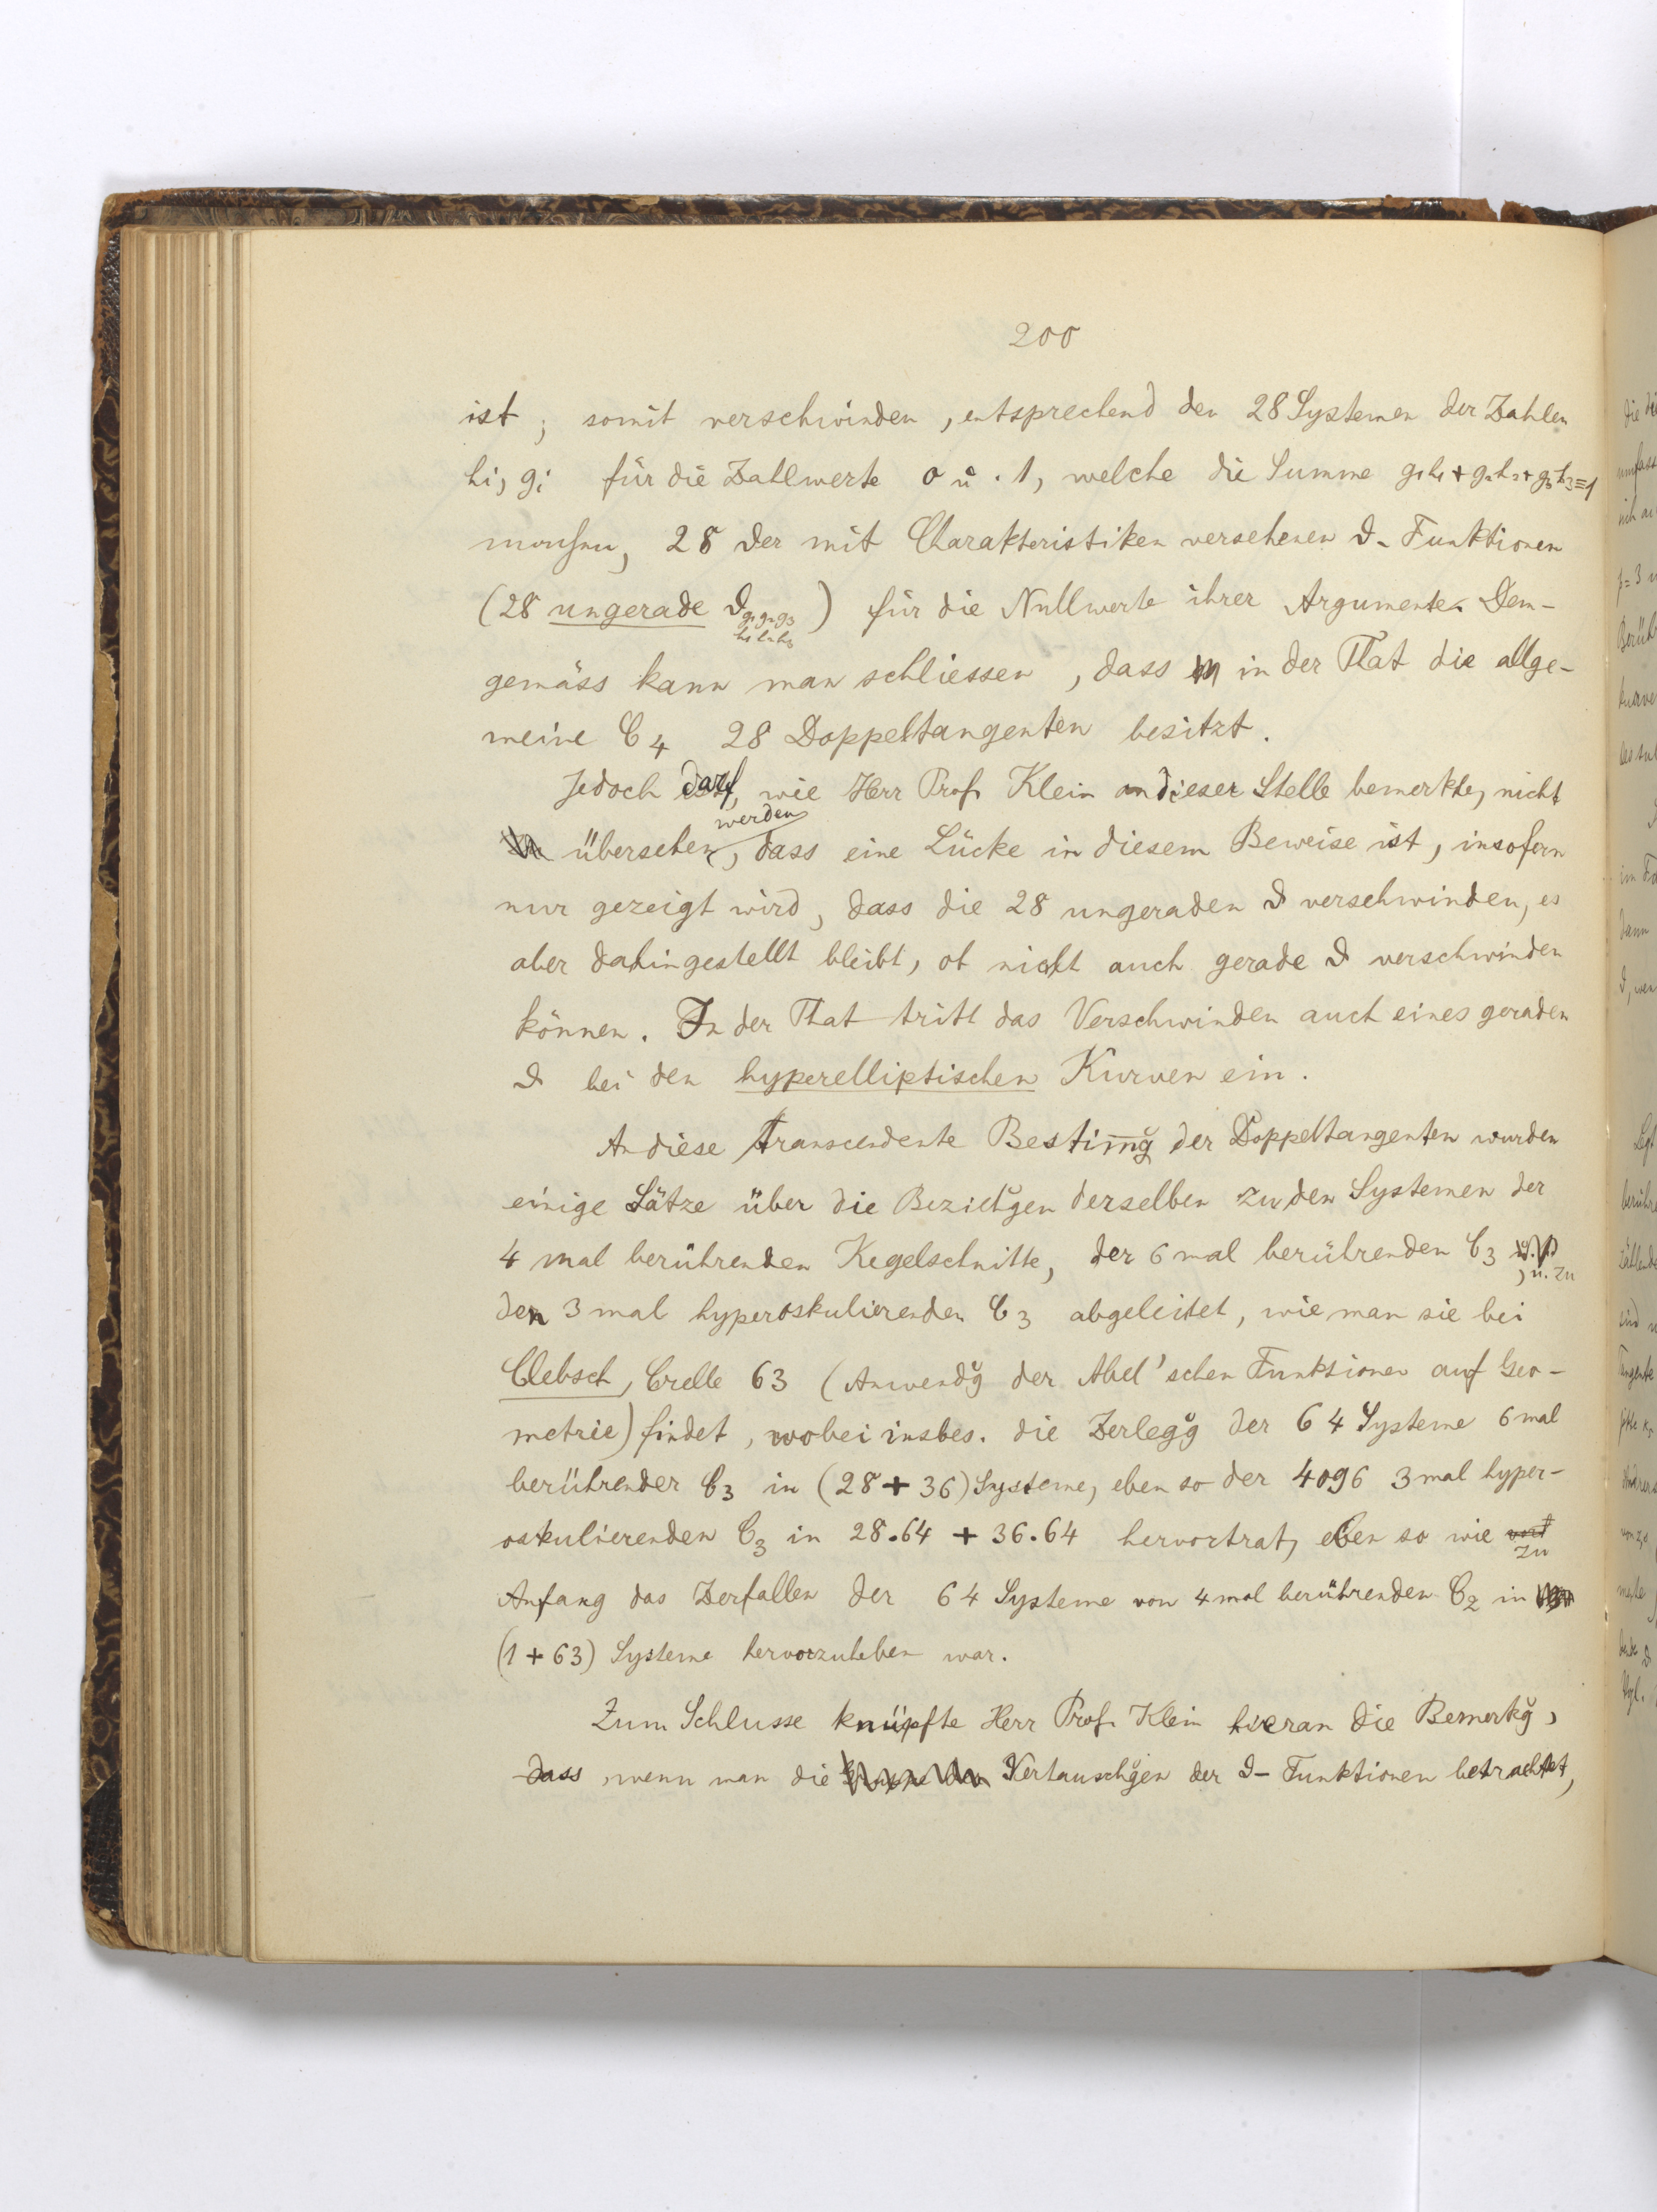 200
ist; somit verschwinden, entsprechend den 28 Systemen der Zahlen
hi, gi für die Zahlwerte 0 u. 1, welche die Summe g₁h₁+g₂h₂+g₃h₃≡1
machen, 28 der mit Charakteristiken versehenen ϑ-Funktionen
(28 ungerade ϑ g₁g₂g₃ h₁h₂h₃) für die Nullwerte ihrer Argumente. Dem-
gemäss kann man schliessen, dass in der That die allge-
meine C₄ 28 Doppeltangenten besitzt.
Jedoch darf, wie Herr Prof. Klein an dieser Stelle bemerkte, nicht
übersehen werden, dass eine Lücke in diesem Beweise ist, insofern
nur gezeigt wird, dass die 28 ungeraden ϑ verschwinden, es
aber dahingestellt bleibt, ob nicht auch gerade ϑ verschwinden
können. In der That tritt das Verschwinden auch eines geraden
ϑ bei den hyperelliptischen Kurven ein.
An diese transcendente Bestim̄g der Doppeltangenten wurden
einige Sätze über die Beziehgen derselben zu den Systemen der
4 mal berührenden Kegelschnitte, der 6 mal berührenden C₃, u. zu
den 3 mal hyperoskulierenden C₃ abgeleitet, wie man sie bei
Clebsch, Crelle 63 (Anwendg der Abel'schen Funktionen auf Geo-
metrie) findet, wobei insbes. die Zerlegg der 64 Systeme 6 mal
berührender C₃ in (28 + 36) Systeme, eben so der 4096 3 mal hyper-
oskulierenden C₃ in 28.64 + 36.64 hervortrat, eben so wie zu
Anfang das Zerfallen der 64 Systeme von 4 mal berührenden C₂ in
(1 + 63) Systeme hervorzuheben war.
Zum Schlusse knüpfte Herr Prof. Klein hieran die Bemerkg,
dass, wenn man die Vertauschgen der ϑ-Funktionen betrachtet,